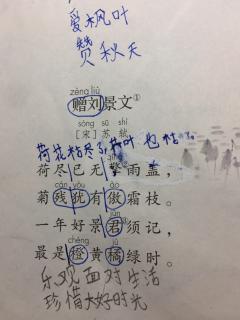 爱枫叶
赞秋天
zèng liú
赠刘景文①
sòng sū shì
[宋]苏轼
荷花枯尽了,荷叶也枯了
荷尽已无擎雨盖,
cán yóu ào
菊残犹有傲霜枝。
jūn
一年好景君须记,
chéng jú
最是橙黄橘绿时。
乐观面对生活
珍惜大好时光